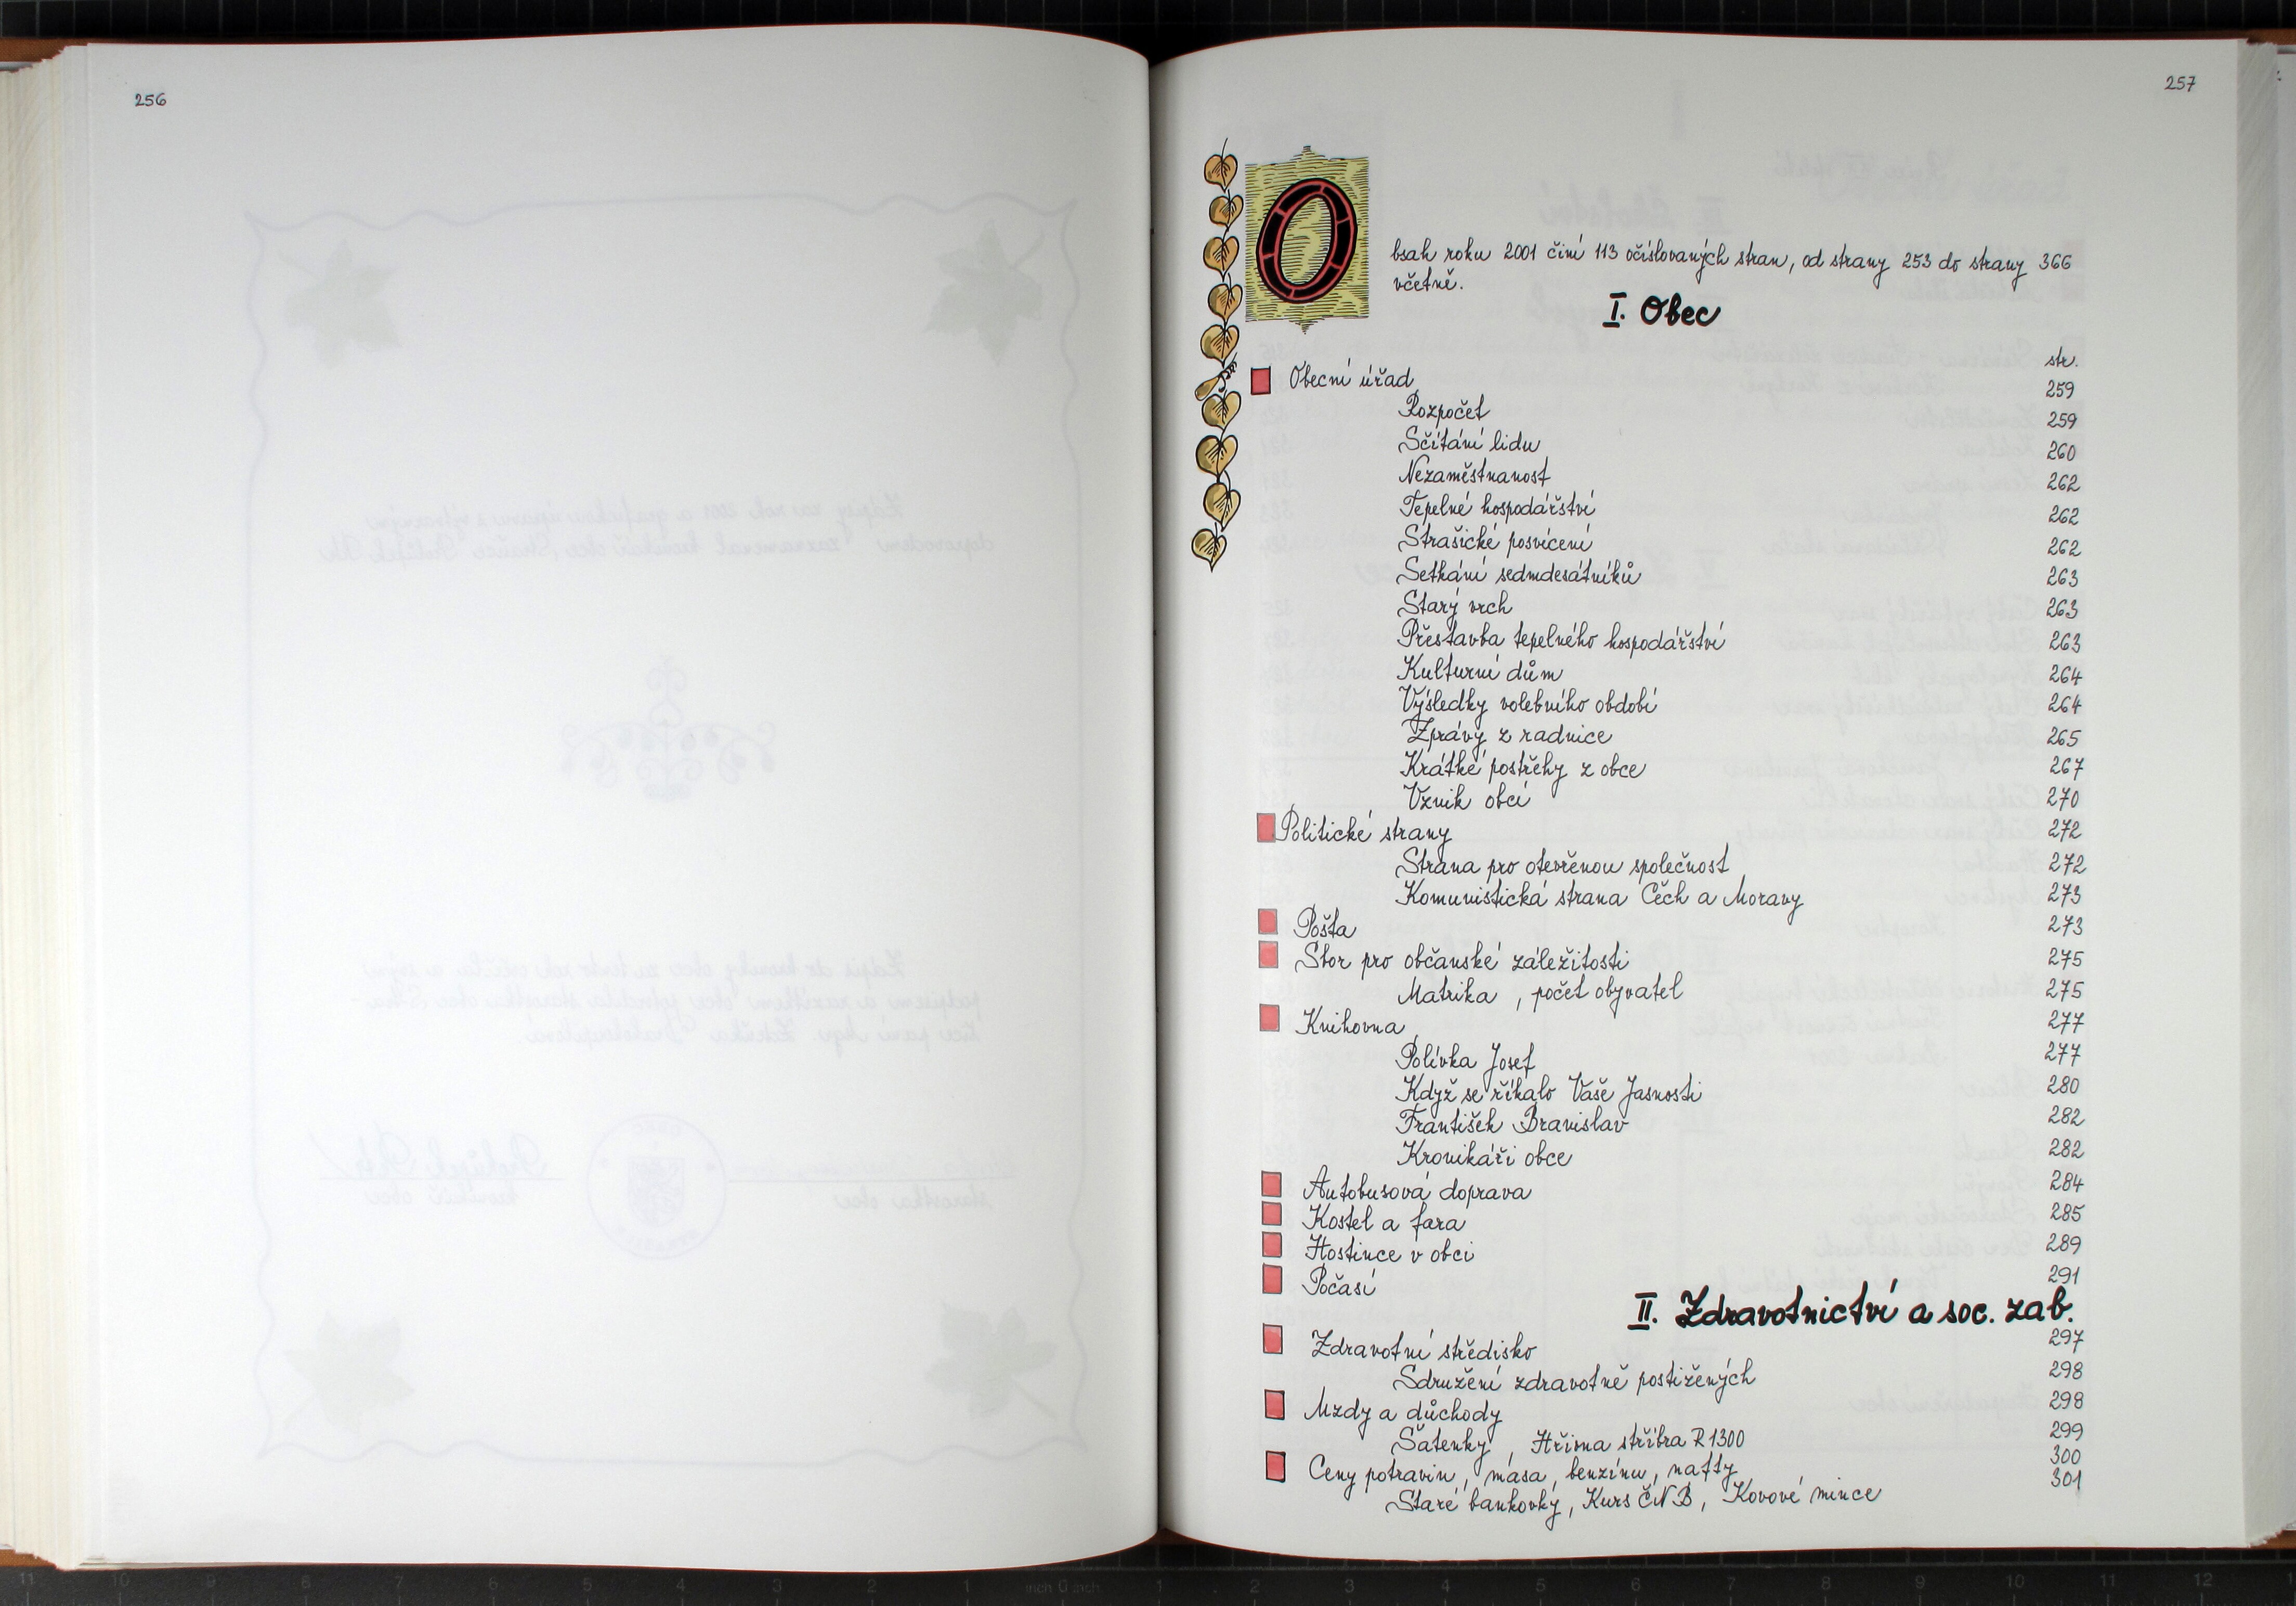 256
257
Obsah roku 2001 činí 113 očíslovaných stran, od strany 253 do strany 366
včetně.
I. Obec
str.
Obecní úřad 259
Rozpočet 259
Sčítání lidu 260
Nezaměstnanost 262
Tepelné hospodářství 262
Strašické posvícení 262
Setkání sedmdesátníků 263
Starý vrch 263
Přestavba tepelného hospodářství 263
Kulturní dům 264
Výsledky volebního období 264
Zprávy z radnice 265
Krátké postřehy z obce 267
Vznik obcí 270
Politické strany 272
Strana pro otevřenou společnost 272
Komunistická strana Čech a Moravy 273
Pošta 273
Sbor pro občanské záležitosti 275
Matrika, počet obyvatel 275
Knihovna 277
Polívka Josef 277
Když se říkalo Vaše Jasnosti 280
František Branislav 282
Kronikáři obce 282
Autobusová doprava 284
Kostel a fara 285
Hostince v obci 289
Počasí 291
II. Zdravotnictví a soc. zab.
Zdravotní středisko 297
Sdružení zdravotně postižených 298
Mzdy a důchody 298
Šatenky, Hřivna stříbra R 1300 299
Ceny potravin, masa, benzínu, nafty 300
Staré bankovky, Kurs ČNB, Kovové mince 301